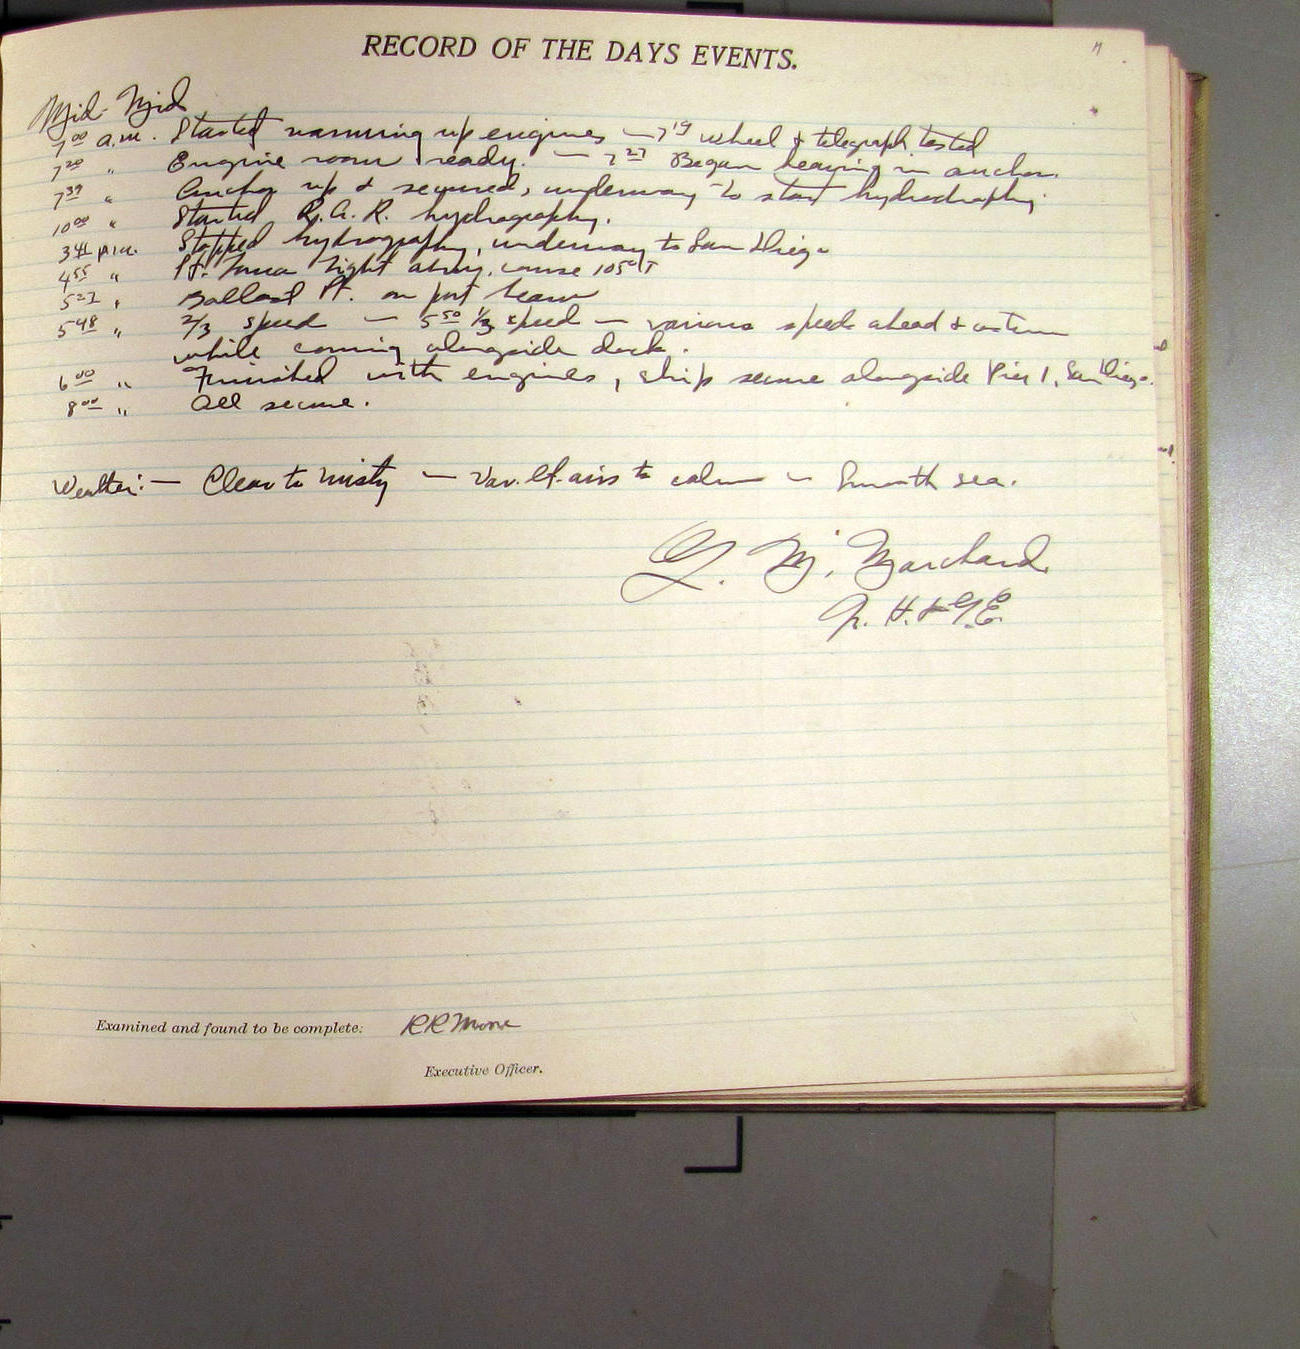 RECORD OF THE DAYS EVENTS.
Mid-Mid
7 00 a.m. Started warming up engines — 7 19 wheel & telegraph tested
7 20 " Engine room ready. — 7 27 Began heaving in anchor.
7 39 " Anchor up & secured, underway to start hydrography.
10 00 " Started R.A.R. hydrography.
3 41 p.m. Stopped hydrography, underway to San Diego
4 55 " Pt. Loma Light abm, course 105° T
5 27 " Ballast Pt. on port beam
5 48 " 2/3 speed — 5 50 1/3 speed — various speeds ahead & astern
while coming alongside dock.
6 00 " Finished with engines, ship secure alongside Pier 1, San Diego.
8 00 " All secure.
Weather:— Clear to misty — Var. lt. airs to calm — Smooth sea.
G. M. Marchand.
Jr. H. & G.E.
Examined and found to be complete: RR Moore
Executive Officer.